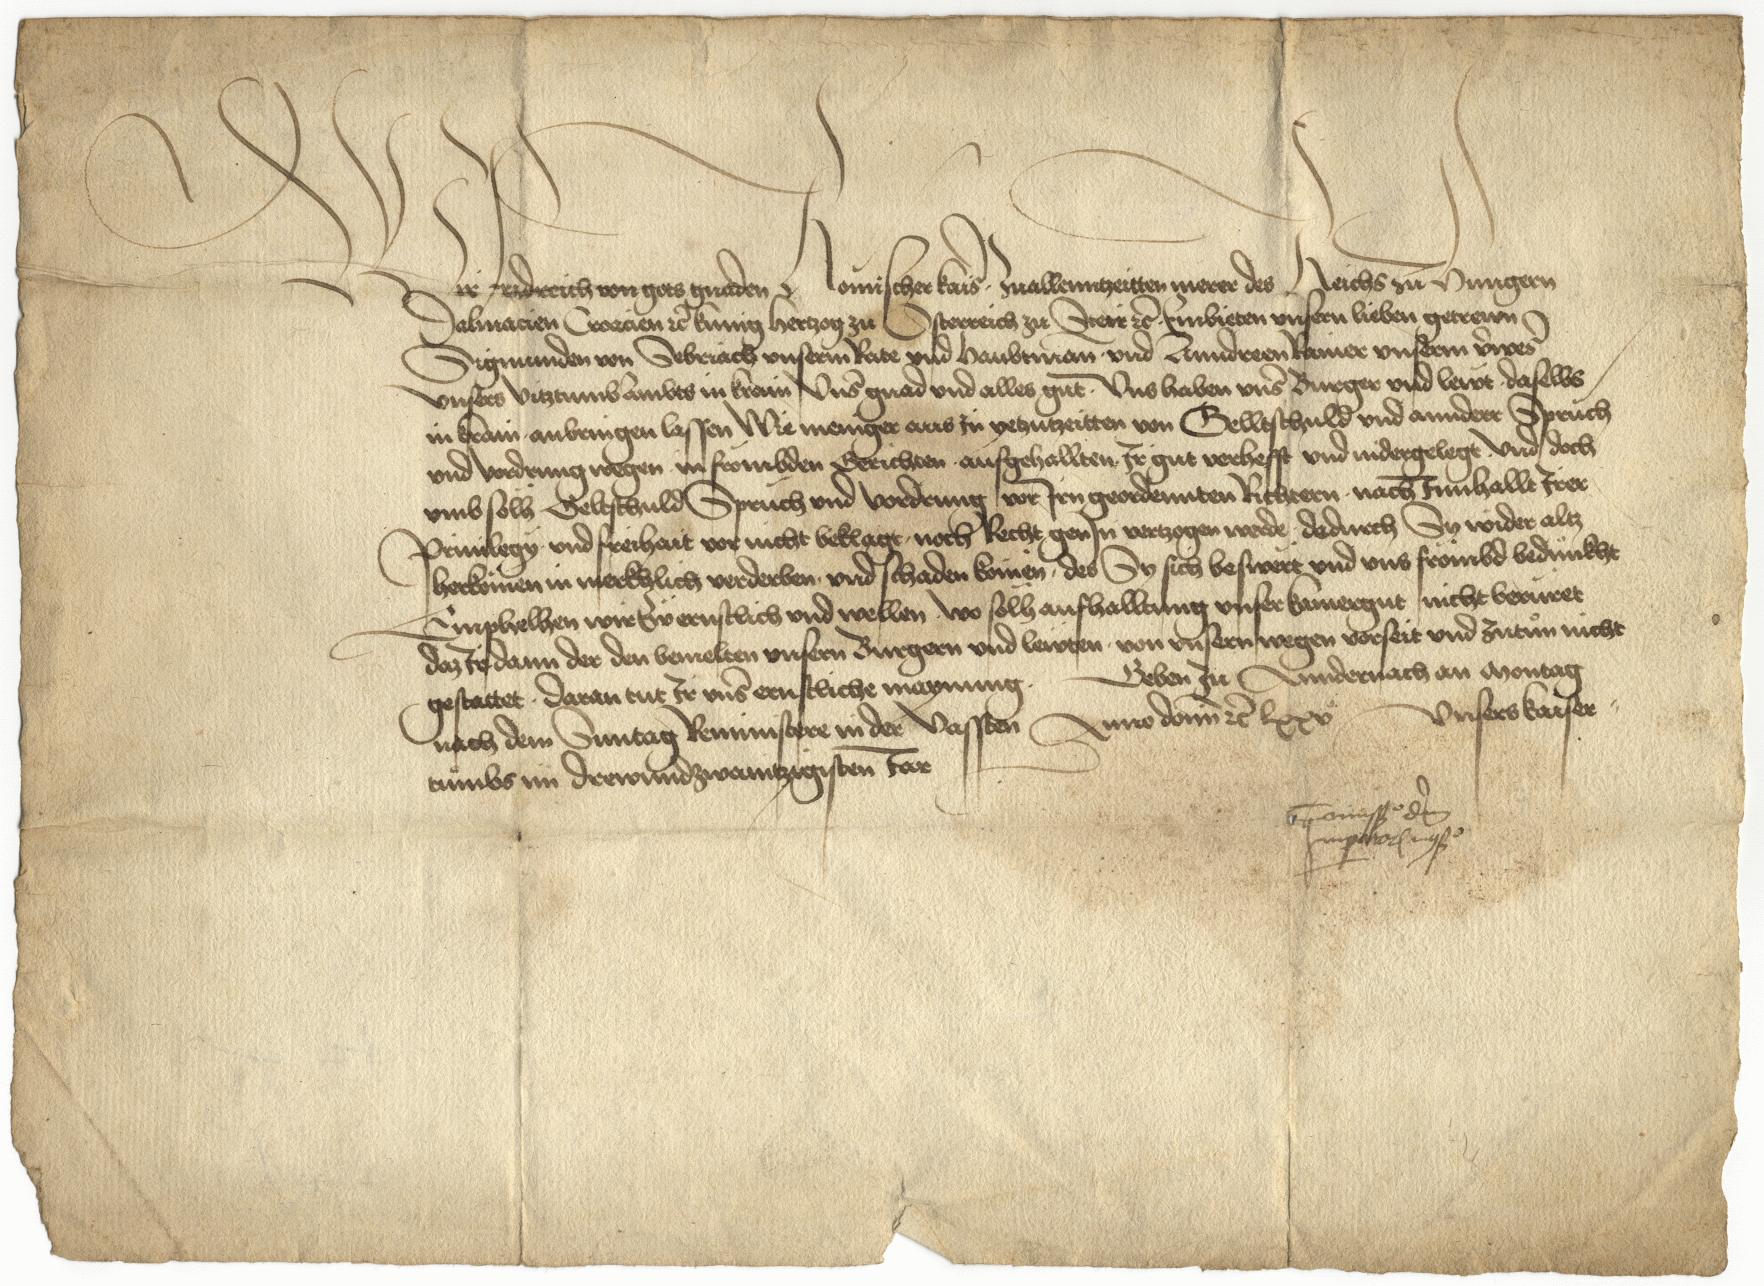 Wir Fridreich von gots gnaden Romischer kais. zuallenntzeitten merer des Reichs zu Hungern
Dalmacien Croacien ꝛc̃ kunig Hertzog zu Osterreich zu Steir ꝛc̃. Embieten vnsern lieben getrewn
Sigmunden von Sebriach vnserm Rate vnd Haubtman vnd Anndreen vnserm
vnsers Vitztumbambts in krain Vnser gnad vnd alles gut. Vns haben vnser Burger vnd lewt daselbs
in krain anbringen lassen Wie meniger aus In yetzutzeitten von Gelltschuld vnd annderr Spruch
vnd vordrung wegen in frömbden Gerichten aufgehallten Ir gut verhefft vnd nidergelegt Vnd doch
vmb sölh Geltschuld Sprüch vnd vordrung vor Irn geordennten Richtern nach Innhallt Irer
Priuilegy vnd freihait vor nicht beklagt noch Recht gen In vertzogen werde dadurch Sy wider altz
herkömen in merkhlich verderben vnd schaden kömen des Sy sich beswert vnd vns frömbd bedunkht
Emphelhen wir Ew ernstlich vnd wellen wo sölh aufhalltung vnser kamergut nicht berüret
daz Ir dann der den bemelten vnsern Burgern vnd lewten von vnsern wegen vorseit vnd Zutün nicht
gestattet. daran tut Ir vnser ernstliche maynung. Geben zu Anndernach an Montag
nach dem Sunntag Reminiscere in der Vassten Anno domini ꝛc̃ lxxv Vnsers kaiser
tumbs im drewundzwaintzigisten Jar